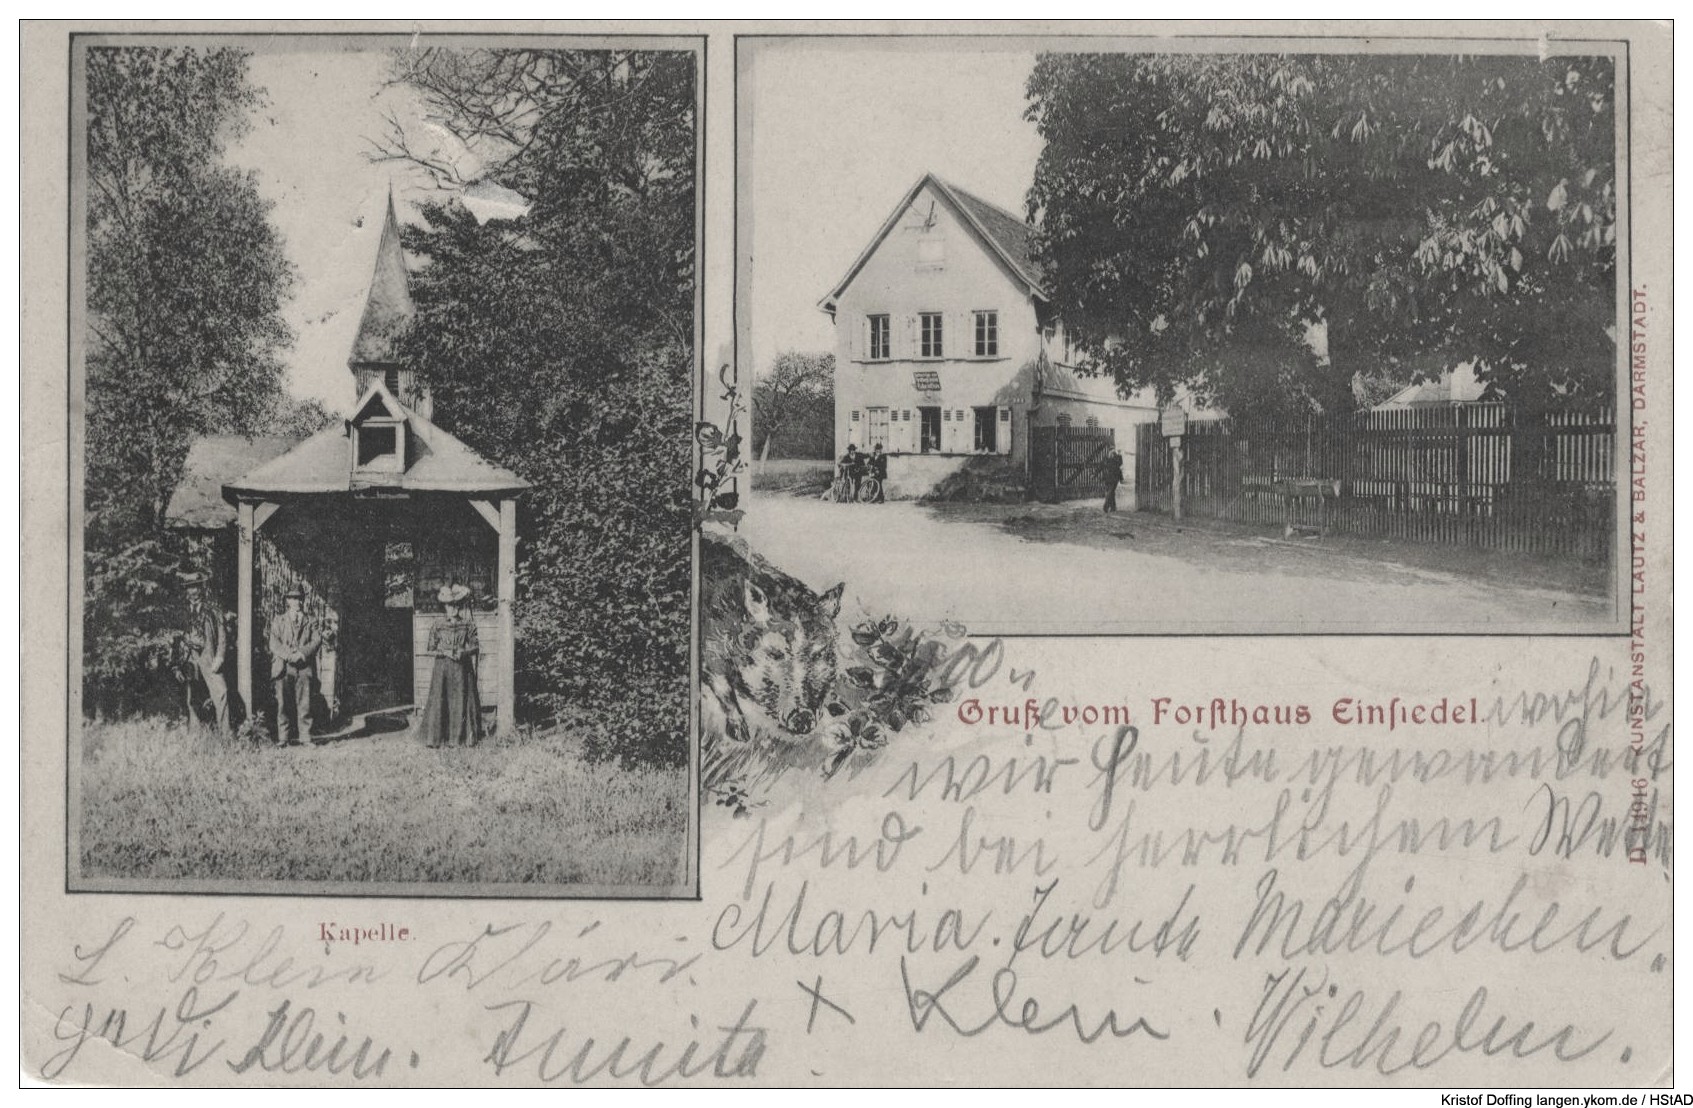 Gruß vom Forsthaus Einsiedel. wohin
wir heute gewandert
sind bei herrlichem
Maria. Tante Mariechen.
Kapelle.
L. Klein Kläri.
Klein. Annita + Klein. Wilhelm.
D. 14916 KUNSTANSTALT LAUTZ & BALZAR, DARMSTADT.
Kristof Doffing langen.ykom.de / HStAD